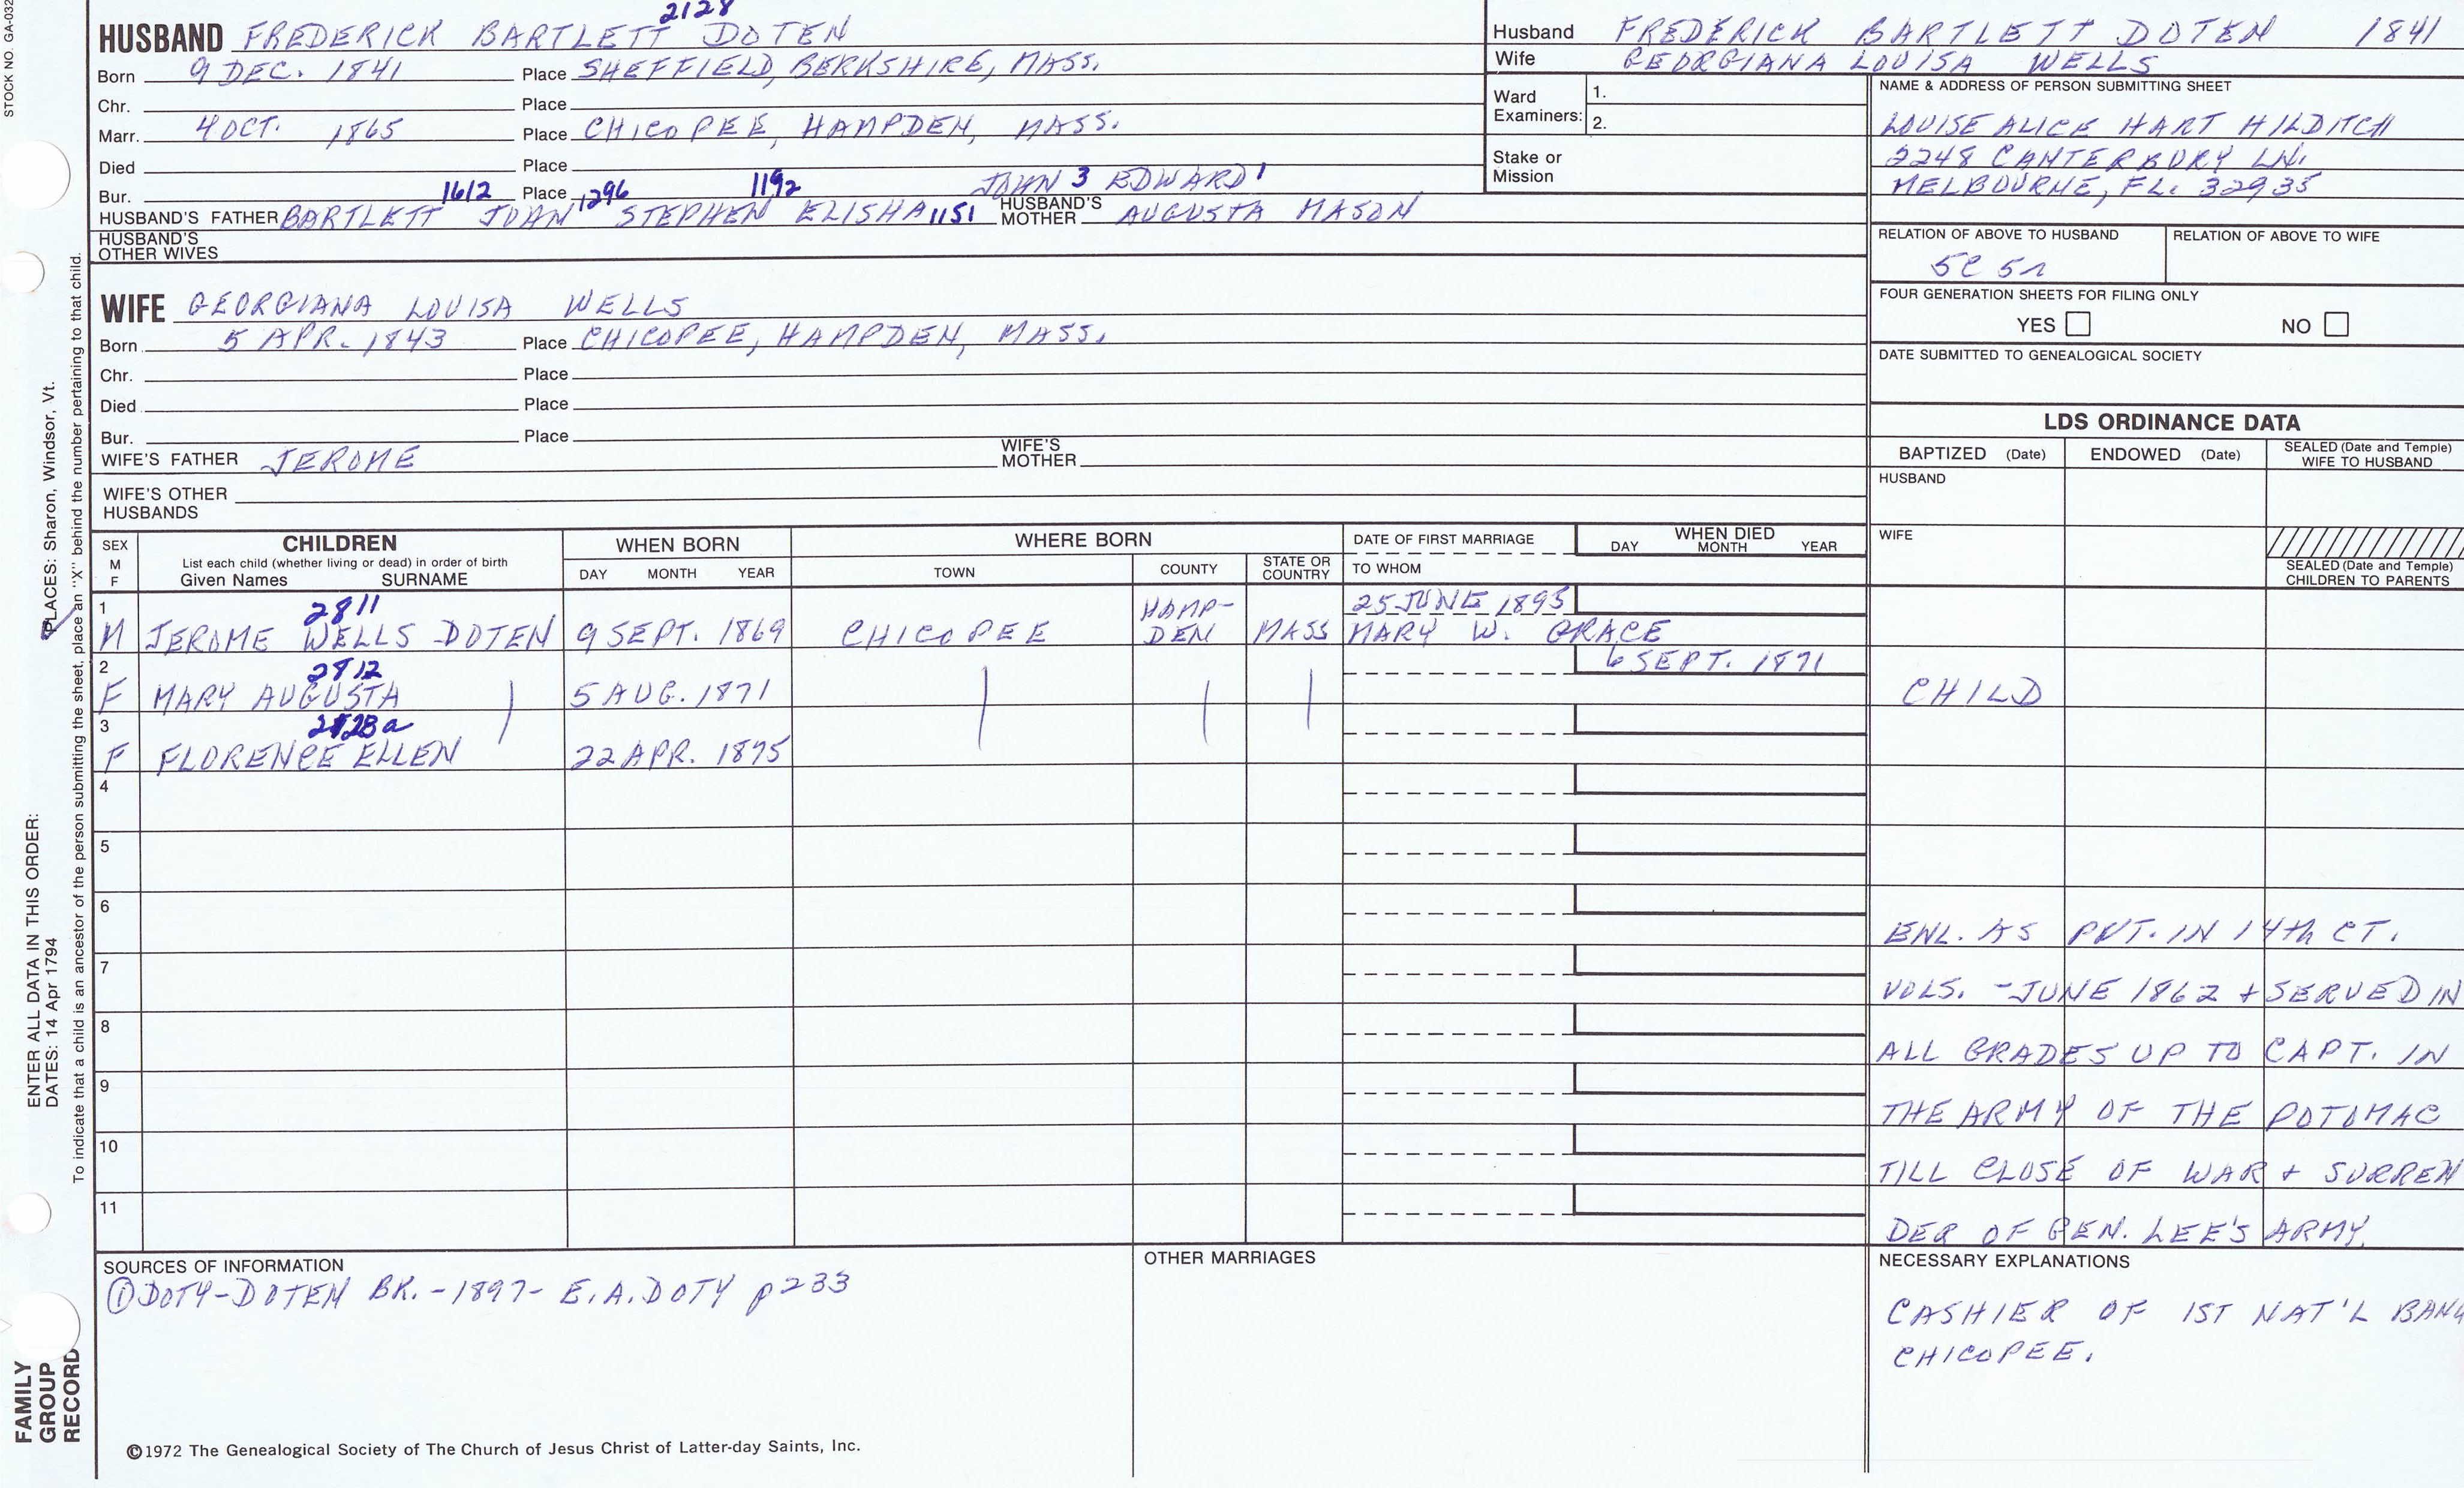 STOCK NO. GA-032
2128
HUSBAND FREDERICK BARTLETT DOTEN
Born 9 DEC. 1841 Place SHEFFIELD, BERKSHIRE, MASS.
Chr. Place
Marr. 4 OCT. 1865 Place CHICOPEE, HAMPDEN, MASS.
Died Place
Bur. 1612 Place 1296 1192 JOHN 3 EDWARD 1
HUSBAND'S FATHER BARTLETT JOHN STEPHEN ELISHA 1151 HUSBAND'S MOTHER AUGUSTA MASON
HUSBAND'S OTHER WIVES
WIFE GEORGIANA LOUISA WELLS
Born 5 APR. 1843 Place CHICOPEE, HAMPDEN, MASS.
Chr. Place
Died Place
Bur. Place
WIFE'S FATHER JEROME WIFE'S MOTHER
WIFE'S OTHER HUSBANDS
Husband FREDERICK BARTLETT DOTEN 1841
Wife GEORGIANA LOUISA WELLS
Ward Examiners: 1.
2.
Stake or Mission
NAME & ADDRESS OF PERSON SUBMITTING SHEET
LOUISE ALICE HART HILDITCH
2248 CANTERBURY LN.
MELBOURNE, FL. 32935
RELATION OF ABOVE TO HUSBAND RELATION OF ABOVE TO WIFE
5C 5r
FOUR GENERATION SHEETS FOR FILING ONLY
YES NO
DATE SUBMITTED TO GENEALOGICAL SOCIETY
LDS ORDINANCE DATA
BAPTIZED (Date) ENDOWED (Date) SEALED (Date and Temple) WIFE TO HUSBAND
HUSBAND
WIFE
SEALED (Date and Temple) CHILDREN TO PARENTS
SEX M F CHILDREN WHEN BORN WHERE BORN DATE OF FIRST MARRIAGE WHEN DIED
List each child (whether living or dead) in order of birth
Given Names SURNAME DAY MONTH YEAR TOWN COUNTY STATE OR COUNTRY TO WHOM DAY MONTH YEAR
1 2811 HAMP- 25 JUNE 1895
M JEROME WELLS DOTEN 9 SEPT. 1869 CHICOPEE DEN MASS MARY W. GRACE
2 2812 6 SEPT. 1871
F MARY AUGUSTA 5 AUG. 1871 CHILD
3
F FLORENCE ELLEN 22 APR. 1875
4
5
6
7
8
9
10
11
ENL. AS PVT. IN 14th CT.
VOLS. - JUNE 1862 + SERVED IN
ALL GRADES UP TO CAPT. IN
THE ARMY OF THE POTOMAC
TILL CLOSE OF WAR + SURREN
DER OF GEN. LEE'S ARMY.
SOURCES OF INFORMATION
① DOTY-DOTEN BK. - 1897 - E.A. DOTY p 233
OTHER MARRIAGES
NECESSARY EXPLANATIONS
CASHIER OF 1ST NAT'L BANK
CHICOPEE.
©1972 The Genealogical Society of The Church of Jesus Christ of Latter-day Saints, Inc.
FAMILY GROUP RECORD
ENTER ALL DATA IN THIS ORDER:
DATES: 14 Apr 1794
PLACES: Sharon, Windsor, Vt.
To indicate that a child is an ancestor of the person submitting the sheet, place an "X" behind the number pertaining to that child.